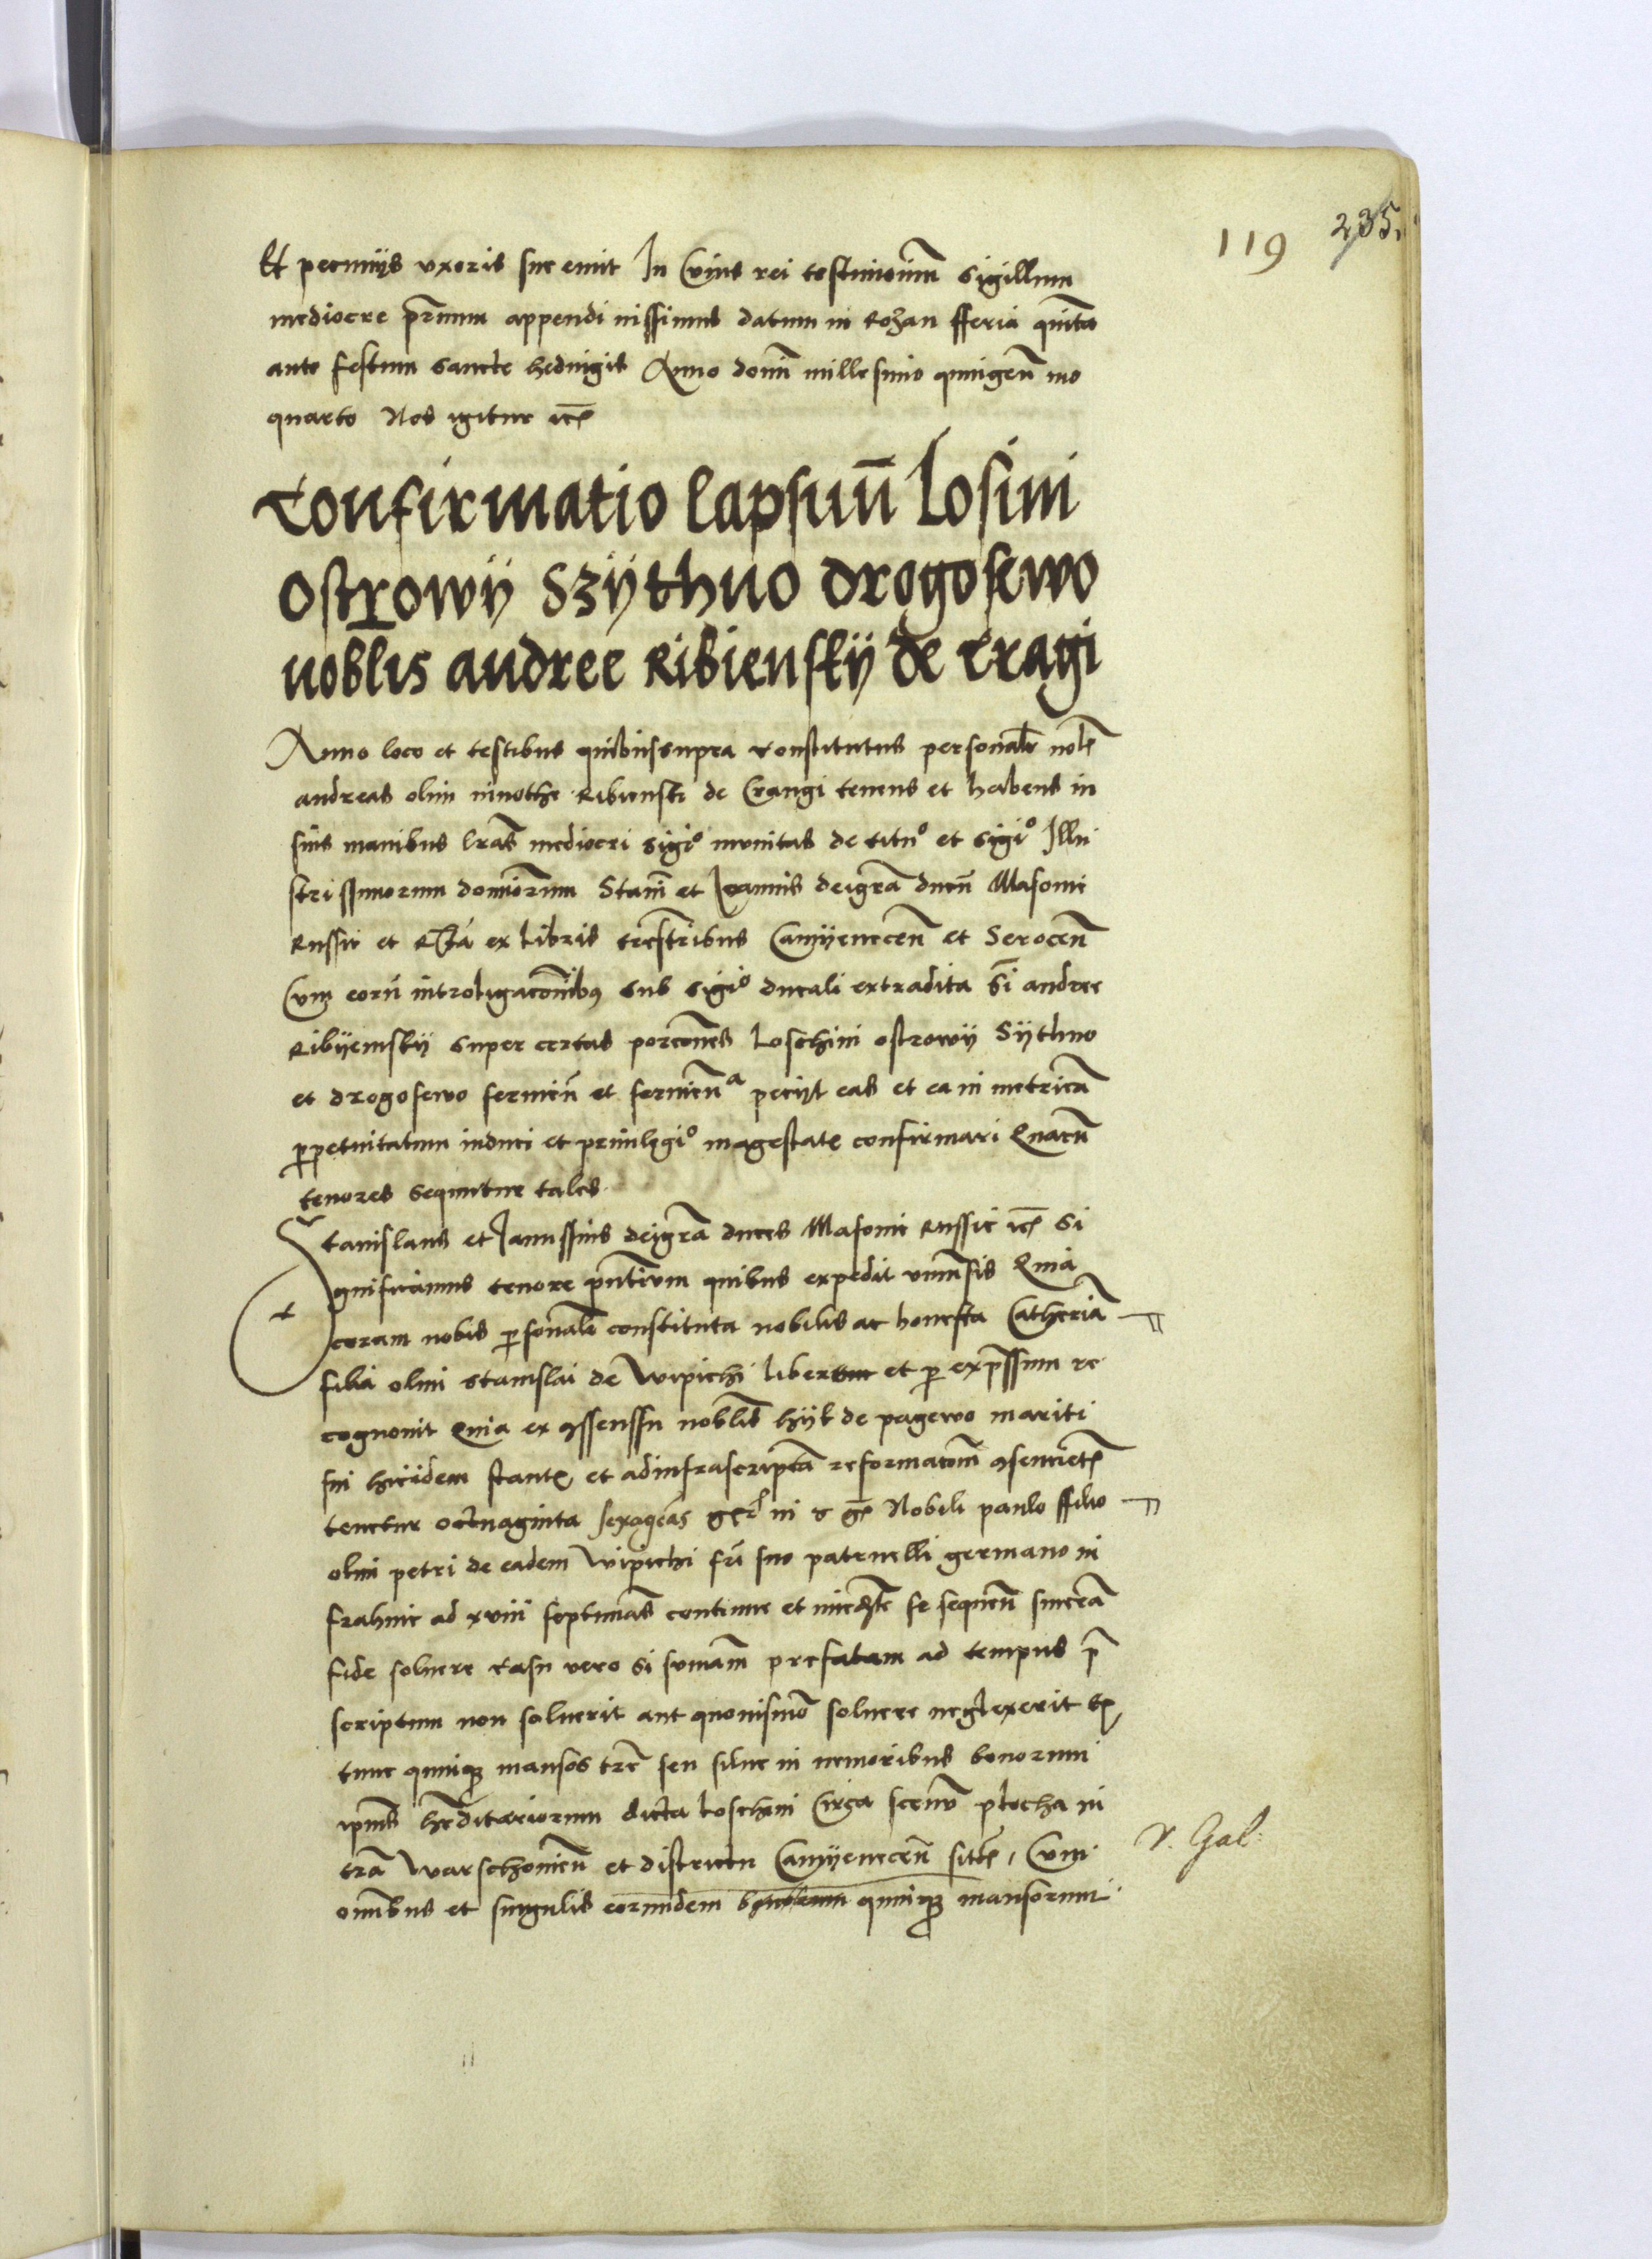 119 235
Et pecunijs vxoris sue emit In Cuius rei testimoniū Sigillum
mediocre pr̄sentium appendi iussimus datum in Rozan fferia quinta
ante festum Sancte heduigis Anno domī millesimo quingen̄ mo
quarto Nos igitur etc̄
Confirmatio lapsuū Losini
Ostrowij Szÿthno drogosewo
noblis andree Ribienskij de Cragi
Anno loco et testibus quibussupra Constitutus personalr̄ nobl̄
andreas olim ninothe Ribienski de Crangi tenens et habens in
suis manibus lrās mediocri sigio munitas de titulo et sigio Illu
strissimorum dominorum Stanī et Joannis deigrā ducū Masouie
Russie et ex libris terrestribus Camÿenecen̄ et Serocen̄
Cum eorū introligacōnibus sub sigio ducali extradita Sī andree
Ribÿemskij super certas porcōnes Loschini ostrowij Sÿthno
et drogosewo petijt eas et ea in metricā
perpetuitatum induci et priuilegio magestatis confirmari Quarū
tenores sequuntur tales
Stanislaus et Janussius deigrā duces Masouie Russie etc̄ Si
gnificamus tenore pn̄tium quibus expedit vniuersis Quia
coram nobis personalr̄ constituta nobilis ac honesta Catherīa
filia olim Stanislai de Wipichi libere et per expressum re
cognouit Quia ex assenssu noblis hijl de pagewo mariti
sui hicidem stantis et adinfrascriptā reformacōnem asencietis
tenetur octuaginta sexagēas in Nobili paulo ffilio
olim petri de eadem Wipichi frī suo patruelli germano in
frahinc ad xviii septimās continue et se sequen̄ sincera
fide soluere Casu vero si sum̄am prefatam ad tempus pre
scriptum non soluerit aut quouismo soluere neglexerit Ex
tunc quinque mansos tre seu silue in nemoribus bonorum
ipius hereditariorum dicta Loschini Circa plocha in
tra Warschouien̄ et districtu Camÿenecen̄ sitos, Cum
omībus et singulis eorundem quinque mansorum
v. Gal: